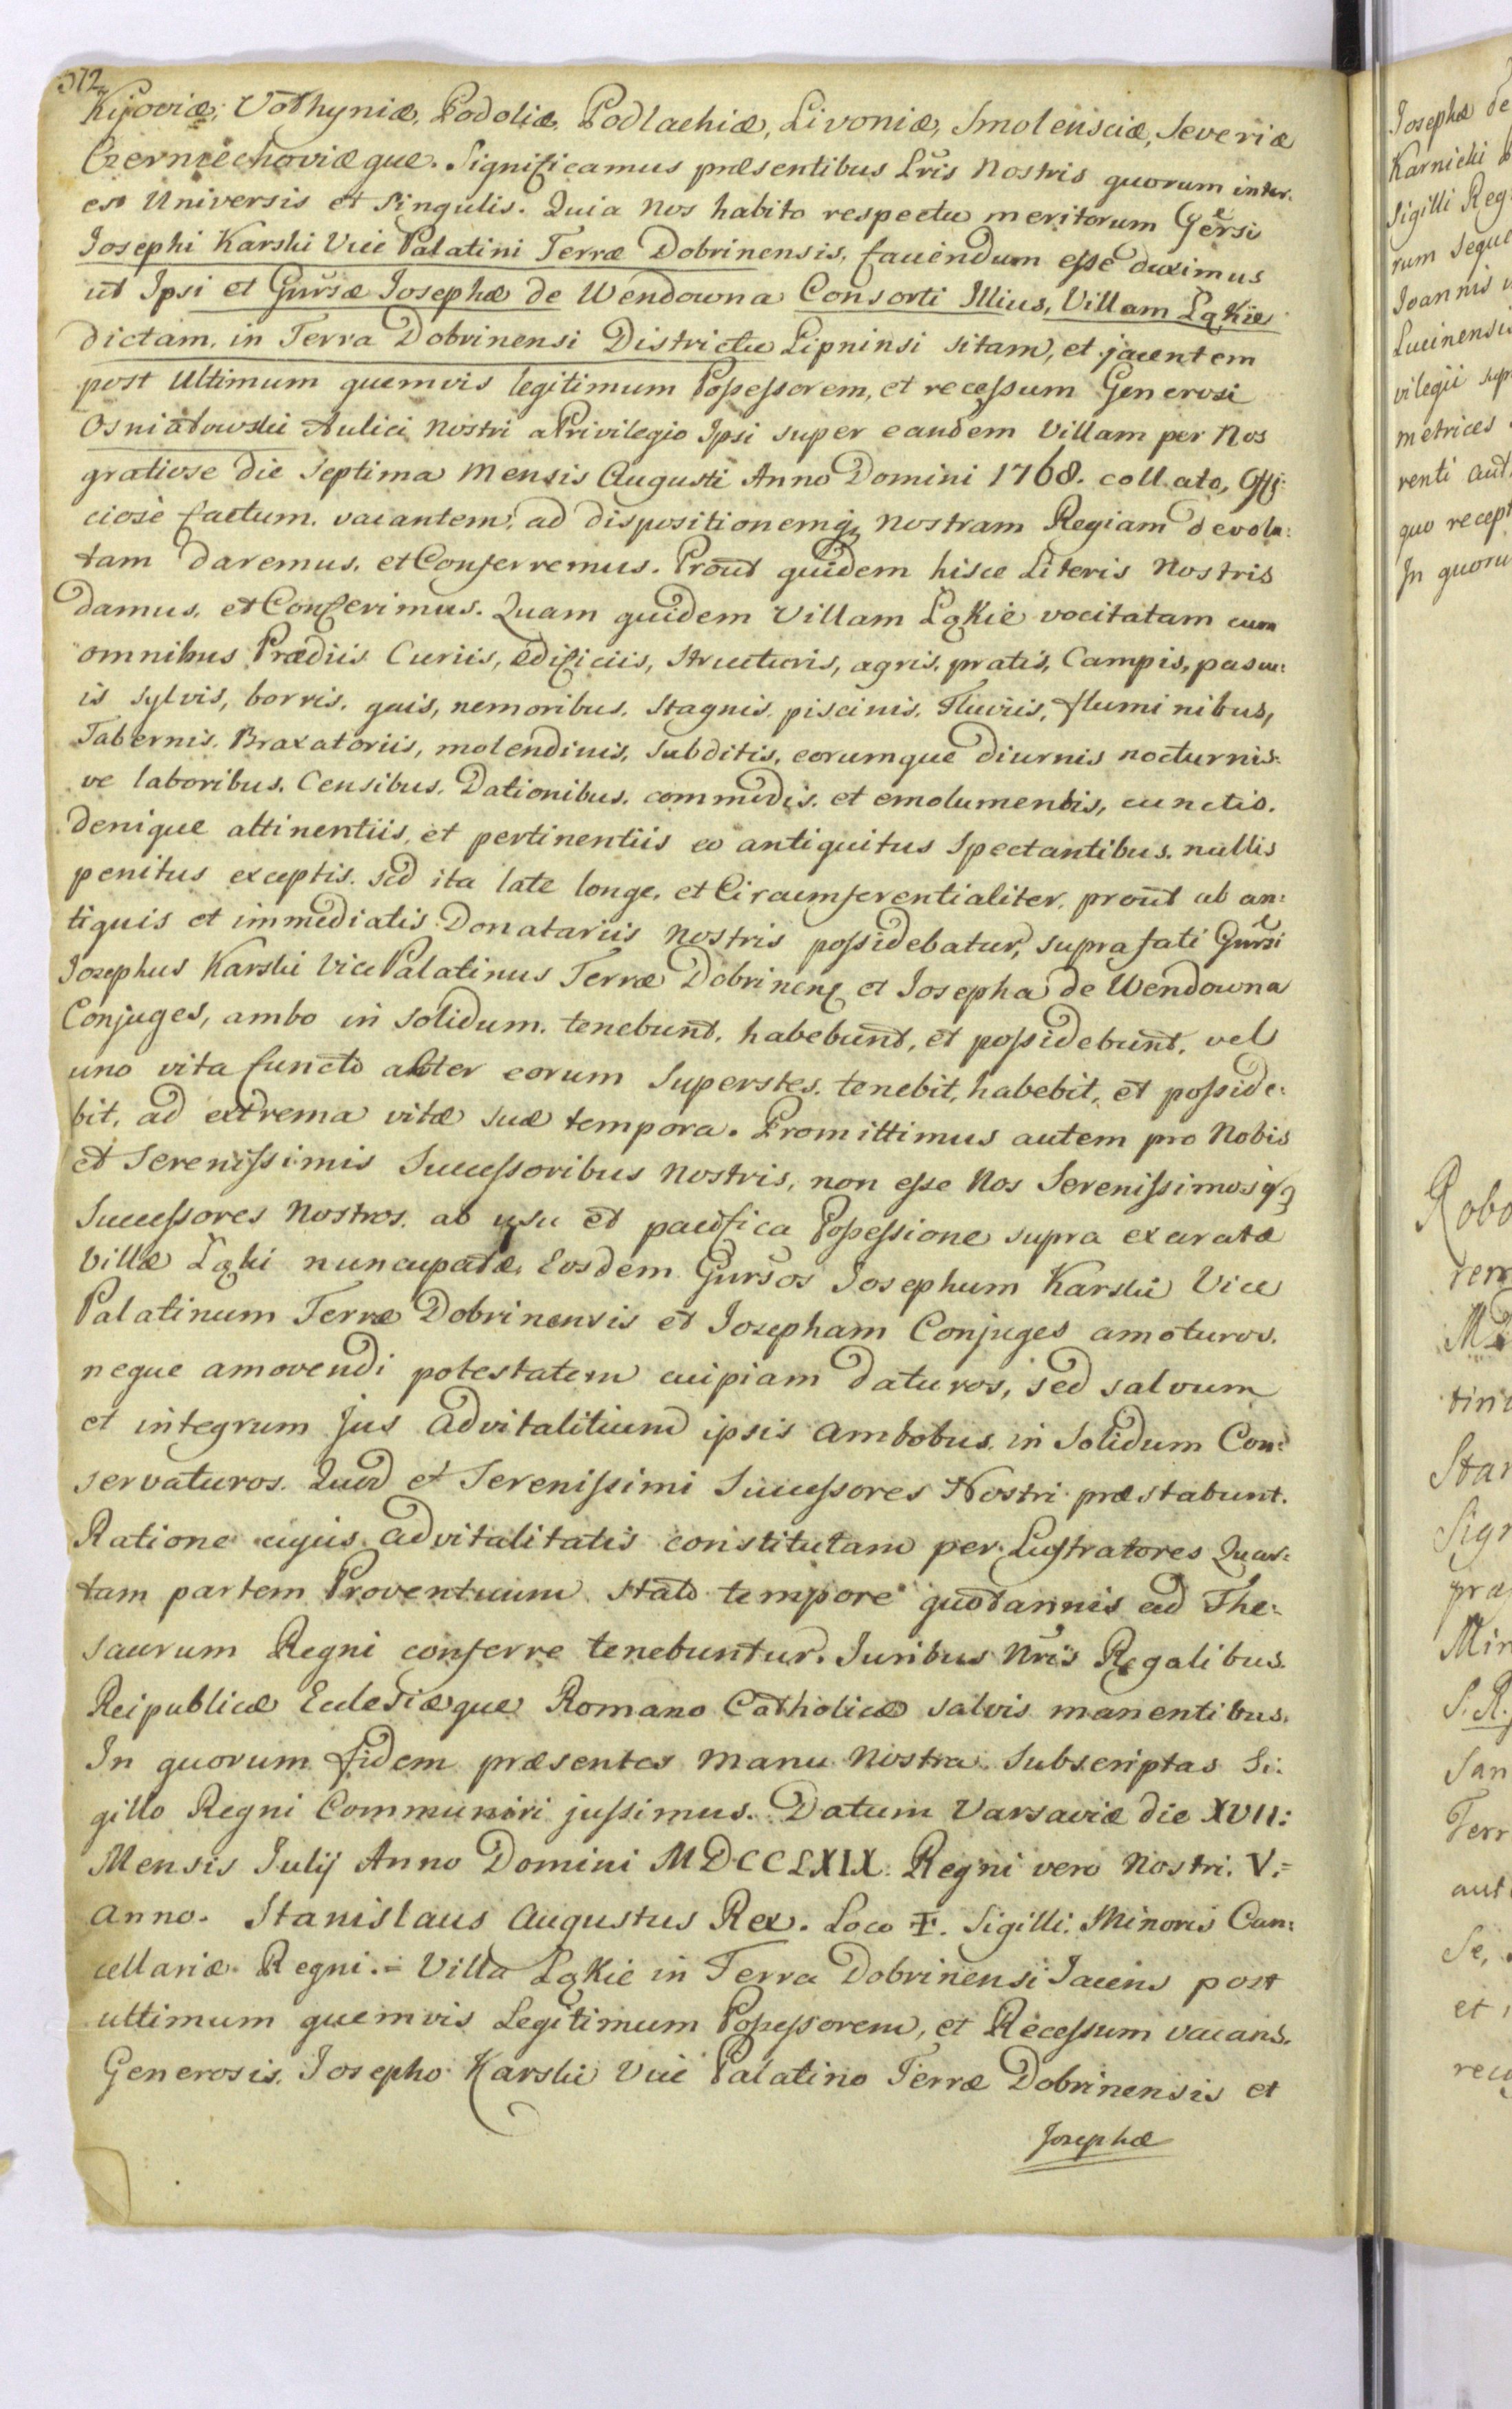 372
Kijoviæ, Volhyniæ, Podoliæ, Podlachiæ, Livoniæ, Smolensciæ, Severiæ
Czerniechoviæque. Significamus præsentibus Lris Nostris quorum inter-
est Universis et Singulis. Quia Nos habito respectu meritorum Gersi
Josephi Karski Vice Palatini Terræ Dobrinensis, favendum esse duximus
ut Ipsi et Gursæ Josephæ de Wendowna Consorti Illius, Villam Łąkie
dictam, in Terra Dobrinensi Districtu Lipninsi sitam, et jacentem
post Ultimum quemvis legitimum Possessorem, et recessum Generosi
Osniałowski Aulici Nostri a Privilegio Ipsi super eandem Villam per Nos
gratiose die Septima Mensis Augusti Anno Domini 1768. collato, Offi:
ciose factum. vacantem, ad dispositionemq; nostram Regiam devolu:
tam daremus. et Conferremus. Prout quidem hisce Literis Nostris
damus, et Conferimus. Quam quidem Villam Łąkie vocitatam cum
omnibus Prædiis Curiis, ædificiis, structuris, agris, pratis, Campis, pascu:
is sylvis, borris, gais, nemoribus, stagnis, piscinis, Fluviis, fluminibus,
Tabernis, Braxatoriis, molendinis, Subditis, eorumque diurnis nocturnis:
ve laboribus, Censibus, Dationibus, commodis, et emolumentis, cunctis.
denique attinentiis, et pertinentiis eo antiquitus Spectantibus, nullis
penitus exceptis. sed ita late longe, et Circumferentialiter, prout ab an:
tiquis et immediatis Donatariis nostris possidebatur, suprafati Gursi
Josephus Karski Vice Palatinus Terræ Dobrinens et Josepha de Wendowna
Conjuges, ambo in solidum, tenebunt, habebunt, et possidebunt, vel
uno vita functo alter eorum Superstes, tenebit, habebit, et posside:
bit, ad extrema vitæ suæ tempora. Promittimus autem pro Nobis
et Serenissimis Successoribus Nostris, non esse Nos Serenissimosq;
Successores Nostros, ab usu et pacifica Possessione supra exaratæ
Villæ Łąki nuncupatæ, Eosdem Gursos Josephum Karski Vice
Palatinum Terræ Dobrinensis et Josepham Conjuges amoturos,
neque amovendi potestatem cuipiam daturos, sed salvum
et integrum Jus advitalitium ipsis ambobus in Solidum Con:
servaturos. Quod et Serenissimi Successores Nostri præstabunt.
Ratione cujus advitalitatis constitutam per Lustratores Quar:
tam partem Proventuum stato tempore quotannis ad The:
saurum Regni conferre tenebuntur. Juribus Nris Regalibus.
Reipublicæ Eclesiæque Romano Catholicæ salvis manentibus.
In quorum fidem præsentes manu Nostra Subscriptas Si:
gillo Regni Communiri jussimus. Datum Varsaviæ die XVII:
Mensis Julij Anno Domini MDCCLXIX. Regni vero Nostri. V.=
anno. Stanislaus Augustus Rex. Loco ‡. Sigilli. Minoris Can:
cellariæ Regni.= Villa Łąkie in Terra Dobrinensi Jacens post
ultimum quemvis Legitimum Possessorem, et Recessum vacans.
Generosis. Josepho Karski Vice Palatino Terræ Dobrinensis et
Josephæ
Josephæ de
Karnicki
Sigilli Reg
rum seque
Joannis
Lucinensis
vilegii
metrices
renti aut
quo recept
In quoru
Robo
rem
Stan
Sign
præ
Min
S. R.
San
Terr
aut
Se,
et